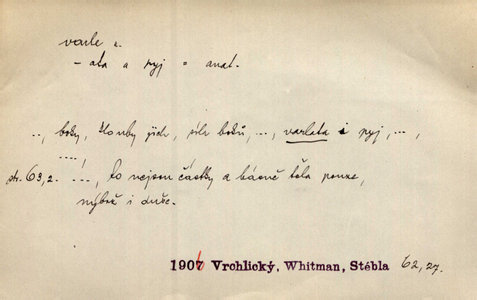 varle n.
- ata a pyj = anat.
..., boky, klouby jich, síla boků, ..., varlata i pyj, ...,
....,
str. 63,2. ...., to nejsou částky a básně těla pouze,
nýbrž i duše.
1906 Vrchlický, Whitman, Stébla 62, 27.